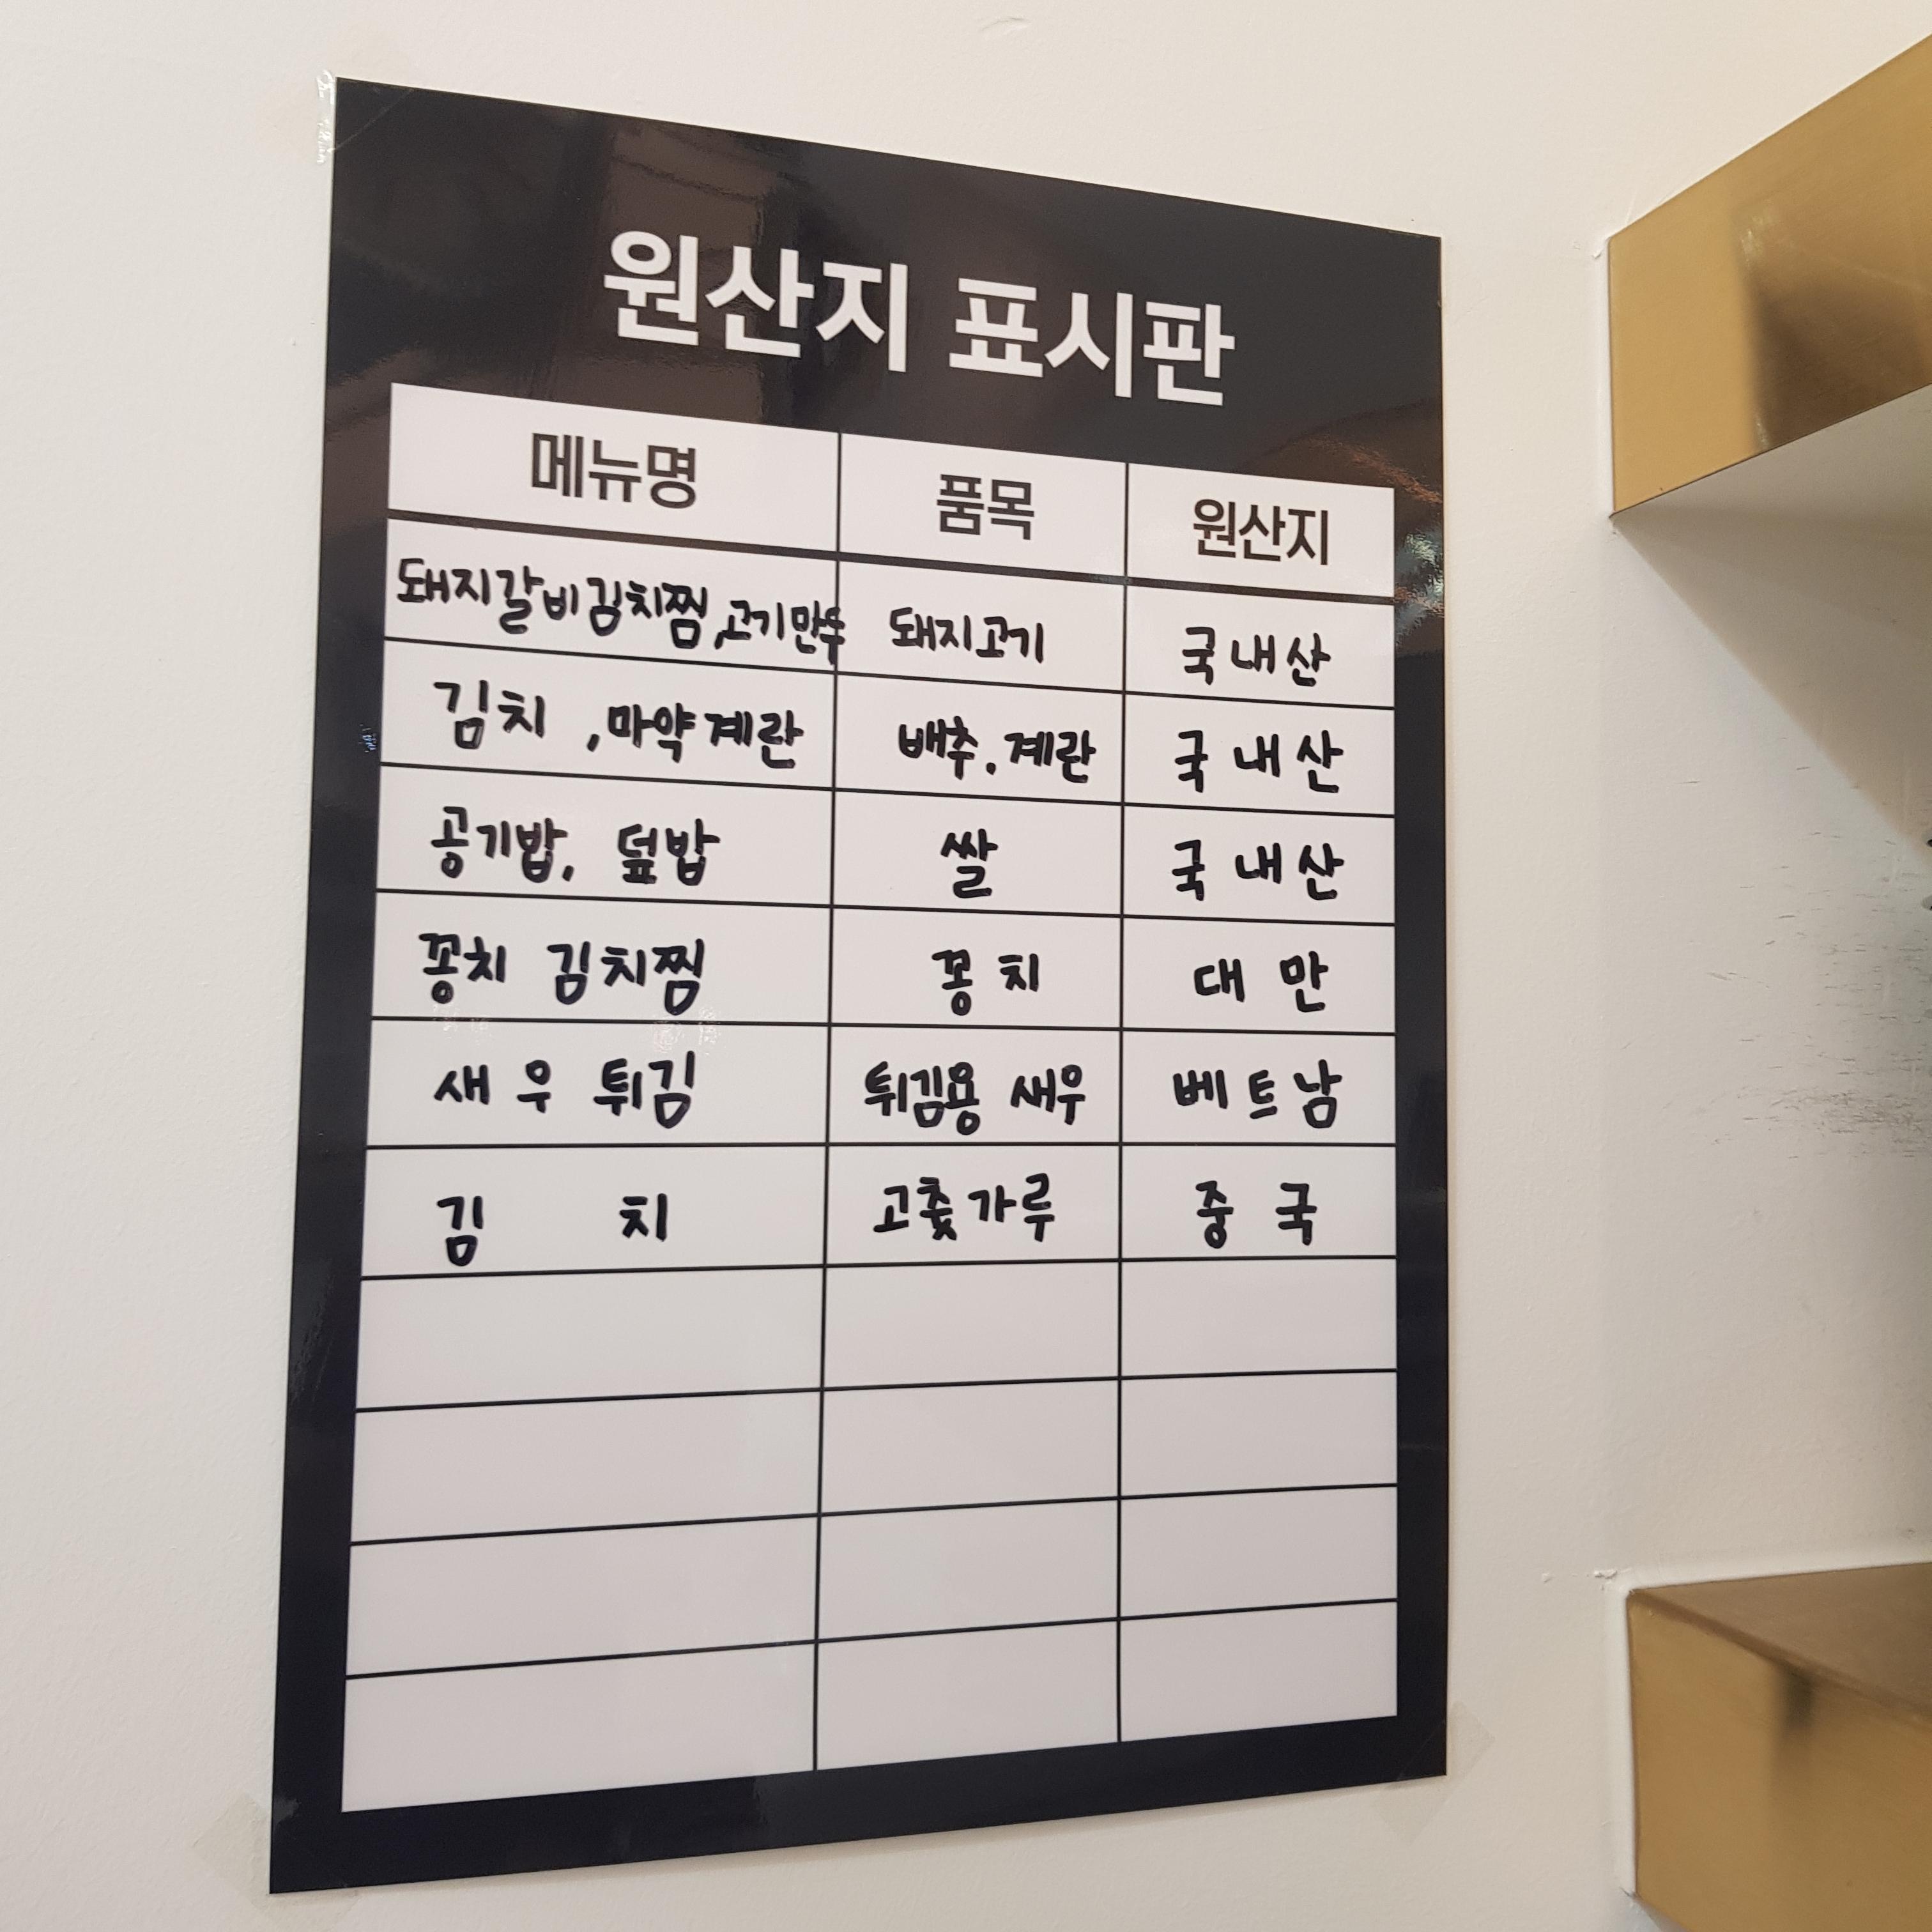 원산지 표시판
메뉴명 품목 원산지
돼지갈비김치찜,고기만두 돼지고기 국내산
김치 ,마약계란 배추.계란 국내산
공기밥, 덮밥 쌀 국내산
꽁치 김치찜 꽁치 대만
새우 튀김 튀김용 새우 베트남
김 치 고춧가루 중국